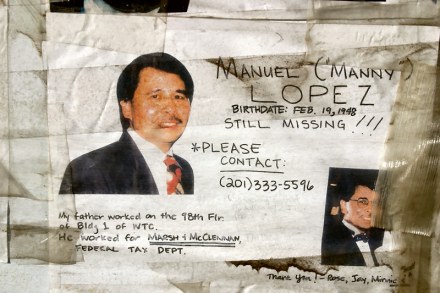 MANUEL ("MANNY")
LOPEZ
BIRTHDATE: FEB. 19, 1948
STILL MISSING !!!
*PLEASE
CONTACT:
(201)333-5596
My father worked on the 98th Flr.
of Bldg 1 of WTC.
He worked for MARSH & McCLENNAN,
FEDERAL TAX DEPT.
Thank You! - Rose, Jay, Minnie